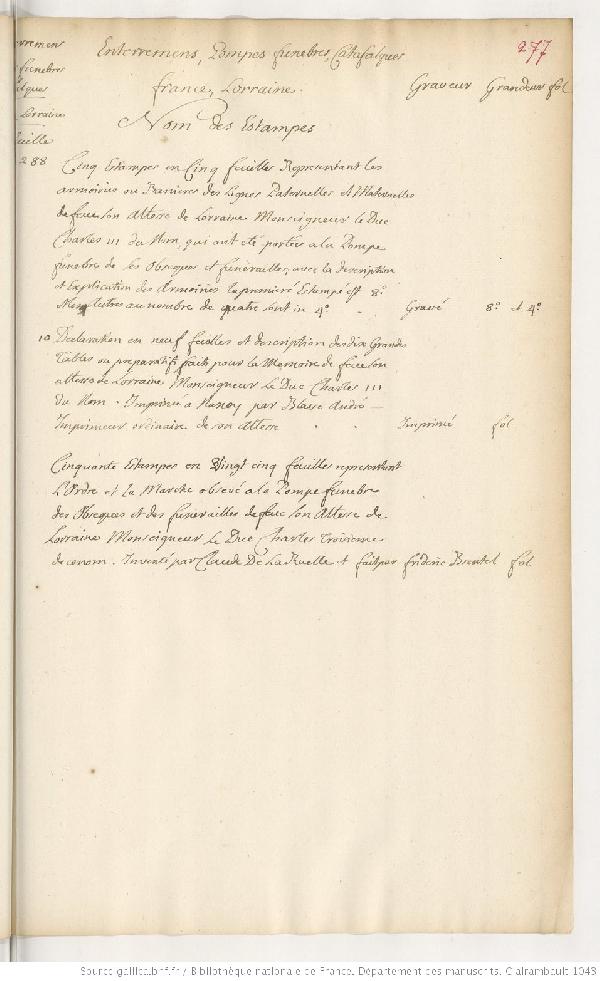 277
Enterremens, Pompes funebres, Catafalques
france, Lorraine. Graveur Grandeur fol
Nom des Estampes
rremens
funebres
lques
Lorraine
uille
288
Cinq Estampes en Cinq feuilles Representant les
armoiries ou Banieres des Lignes Paternelles et Maternelles
de feue Son Altesse de Lorraine Monseigneur le Duc
Charles III du Nom, qui ont été portées a la Pompe
funebre de ses Obseques et funerailles, avec la description
et Explication des Armoiries la premiere Estampe est 8°.
Les autres au nombre de quatre sont in 4° Gravé 8° et 4°
10 Declaration en neuf feuilles et description des dix Grandes
Tables ou preparatifs faits pour la Memoire de feue son
altesse de Lorraine Monseigneur Le Duc Charles III
du Nom. Imprimé a Nancy par Blaise André
Imprimeur ordinaire de son Altesse Imprimé fol
Cinquante Estampes en Vingt cinq feuilles representant
L'Ordre et la Marche observé a la Pompe funebre
des Obseques et des funerailles de feue Son Altesse de
Lorraine Monseigneur Le Duc Charles Troisieme
de ce nom. Inventé par Claude De La Ruelle et fait par frideric Brentel fol.
Source gallica.bnf.fr / Bibliothèque nationale de France. Département des manuscrits. Clairambault 1043